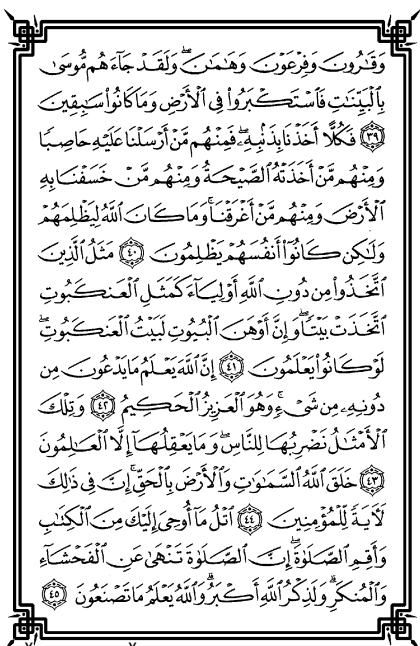 وَقَـٰرُونَ وَفِرْعَوْنَ وَهَـٰمَـٰنَ ۖ وَلَقَدْ جَآءَهُم مُّوسَىٰ
بِٱلْبَيِّنَـٰتِ فَٱسْتَكْبَرُوا۟ فِى ٱلْأَرْضِ وَمَا كَانُوا۟ سَـٰبِقِينَ
﴿٣٩﴾ فَكُلًّا أَخَذْنَا بِذَنۢبِهِۦ ۖ فَمِنْهُم مَّنْ أَرْسَلْنَا عَلَيْهِ حَاصِبًا
وَمِنْهُم مَّنْ أَخَذَتْهُ ٱلصَّيْحَةُ وَمِنْهُم مَّنْ خَسَفْنَا بِهِ
ٱلْأَرْضَ وَمِنْهُم مَّنْ أَغْرَقْنَا ۚ وَمَا كَانَ ٱللَّهُ لِيَظْلِمَهُمْ
وَلَـٰكِن كَانُوٓا۟ أَنفُسَهُمْ يَظْلِمُونَ ﴿٤٠﴾ مَثَلُ ٱلَّذِينَ
ٱتَّخَذُوا۟ مِن دُونِ ٱللَّهِ أَوْلِيَآءَ كَمَثَلِ ٱلْعَنكَبُوتِ
ٱتَّخَذَتْ بَيْتًا ۖ وَإِنَّ أَوْهَنَ ٱلْبُيُوتِ لَبَيْتُ ٱلْعَنكَبُوتِ ۖ
لَوْ كَانُوا۟ يَعْلَمُونَ ﴿٤١﴾ إِنَّ ٱللَّهَ يَعْلَمُ مَا يَدْعُونَ مِن
دُونِهِۦ مِن شَىْءٍ ۚ وَهُوَ ٱلْعَزِيزُ ٱلْحَكِيمُ ﴿٤٢﴾ وَتِلْكَ
ٱلْأَمْثَـٰلُ نَضْرِبُهَا لِلنَّاسِ ۖ وَمَا يَعْقِلُهَآ إِلَّا ٱلْعَـٰلِمُونَ
﴿٤٣﴾ خَلَقَ ٱللَّهُ ٱلسَّمَـٰوَٰتِ وَٱلْأَرْضَ بِٱلْحَقِّ ۚ إِنَّ فِى ذَٰلِكَ
لَـَٔايَةً لِّلْمُؤْمِنِينَ ﴿٤٤﴾ ٱتْلُ مَآ أُوحِىَ إِلَيْكَ مِنَ ٱلْكِتَـٰبِ
وَأَقِمِ ٱلصَّلَوٰةَ ۖ إِنَّ ٱلصَّلَوٰةَ تَنْهَىٰ عَنِ ٱلْفَحْشَآءِ
وَٱلْمُنكَرِ ۗ وَلَذِكْرُ ٱللَّهِ أَكْبَرُ ۗ وَٱللَّهُ يَعْلَمُ مَا تَصْنَعُونَ ﴿٤٥﴾